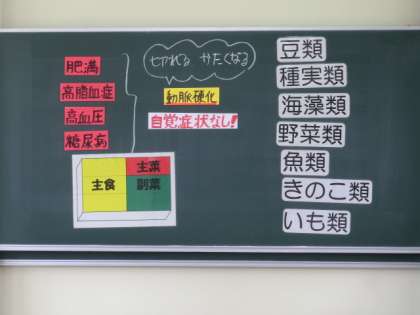 肥満
高脂血症
高血圧
糖尿病
切れる かたくなる
動脈硬化
自覚症状なし!
主菜
主食
副菜
豆類
種実類
海藻類
野菜類
魚類
きのこ類
いも類